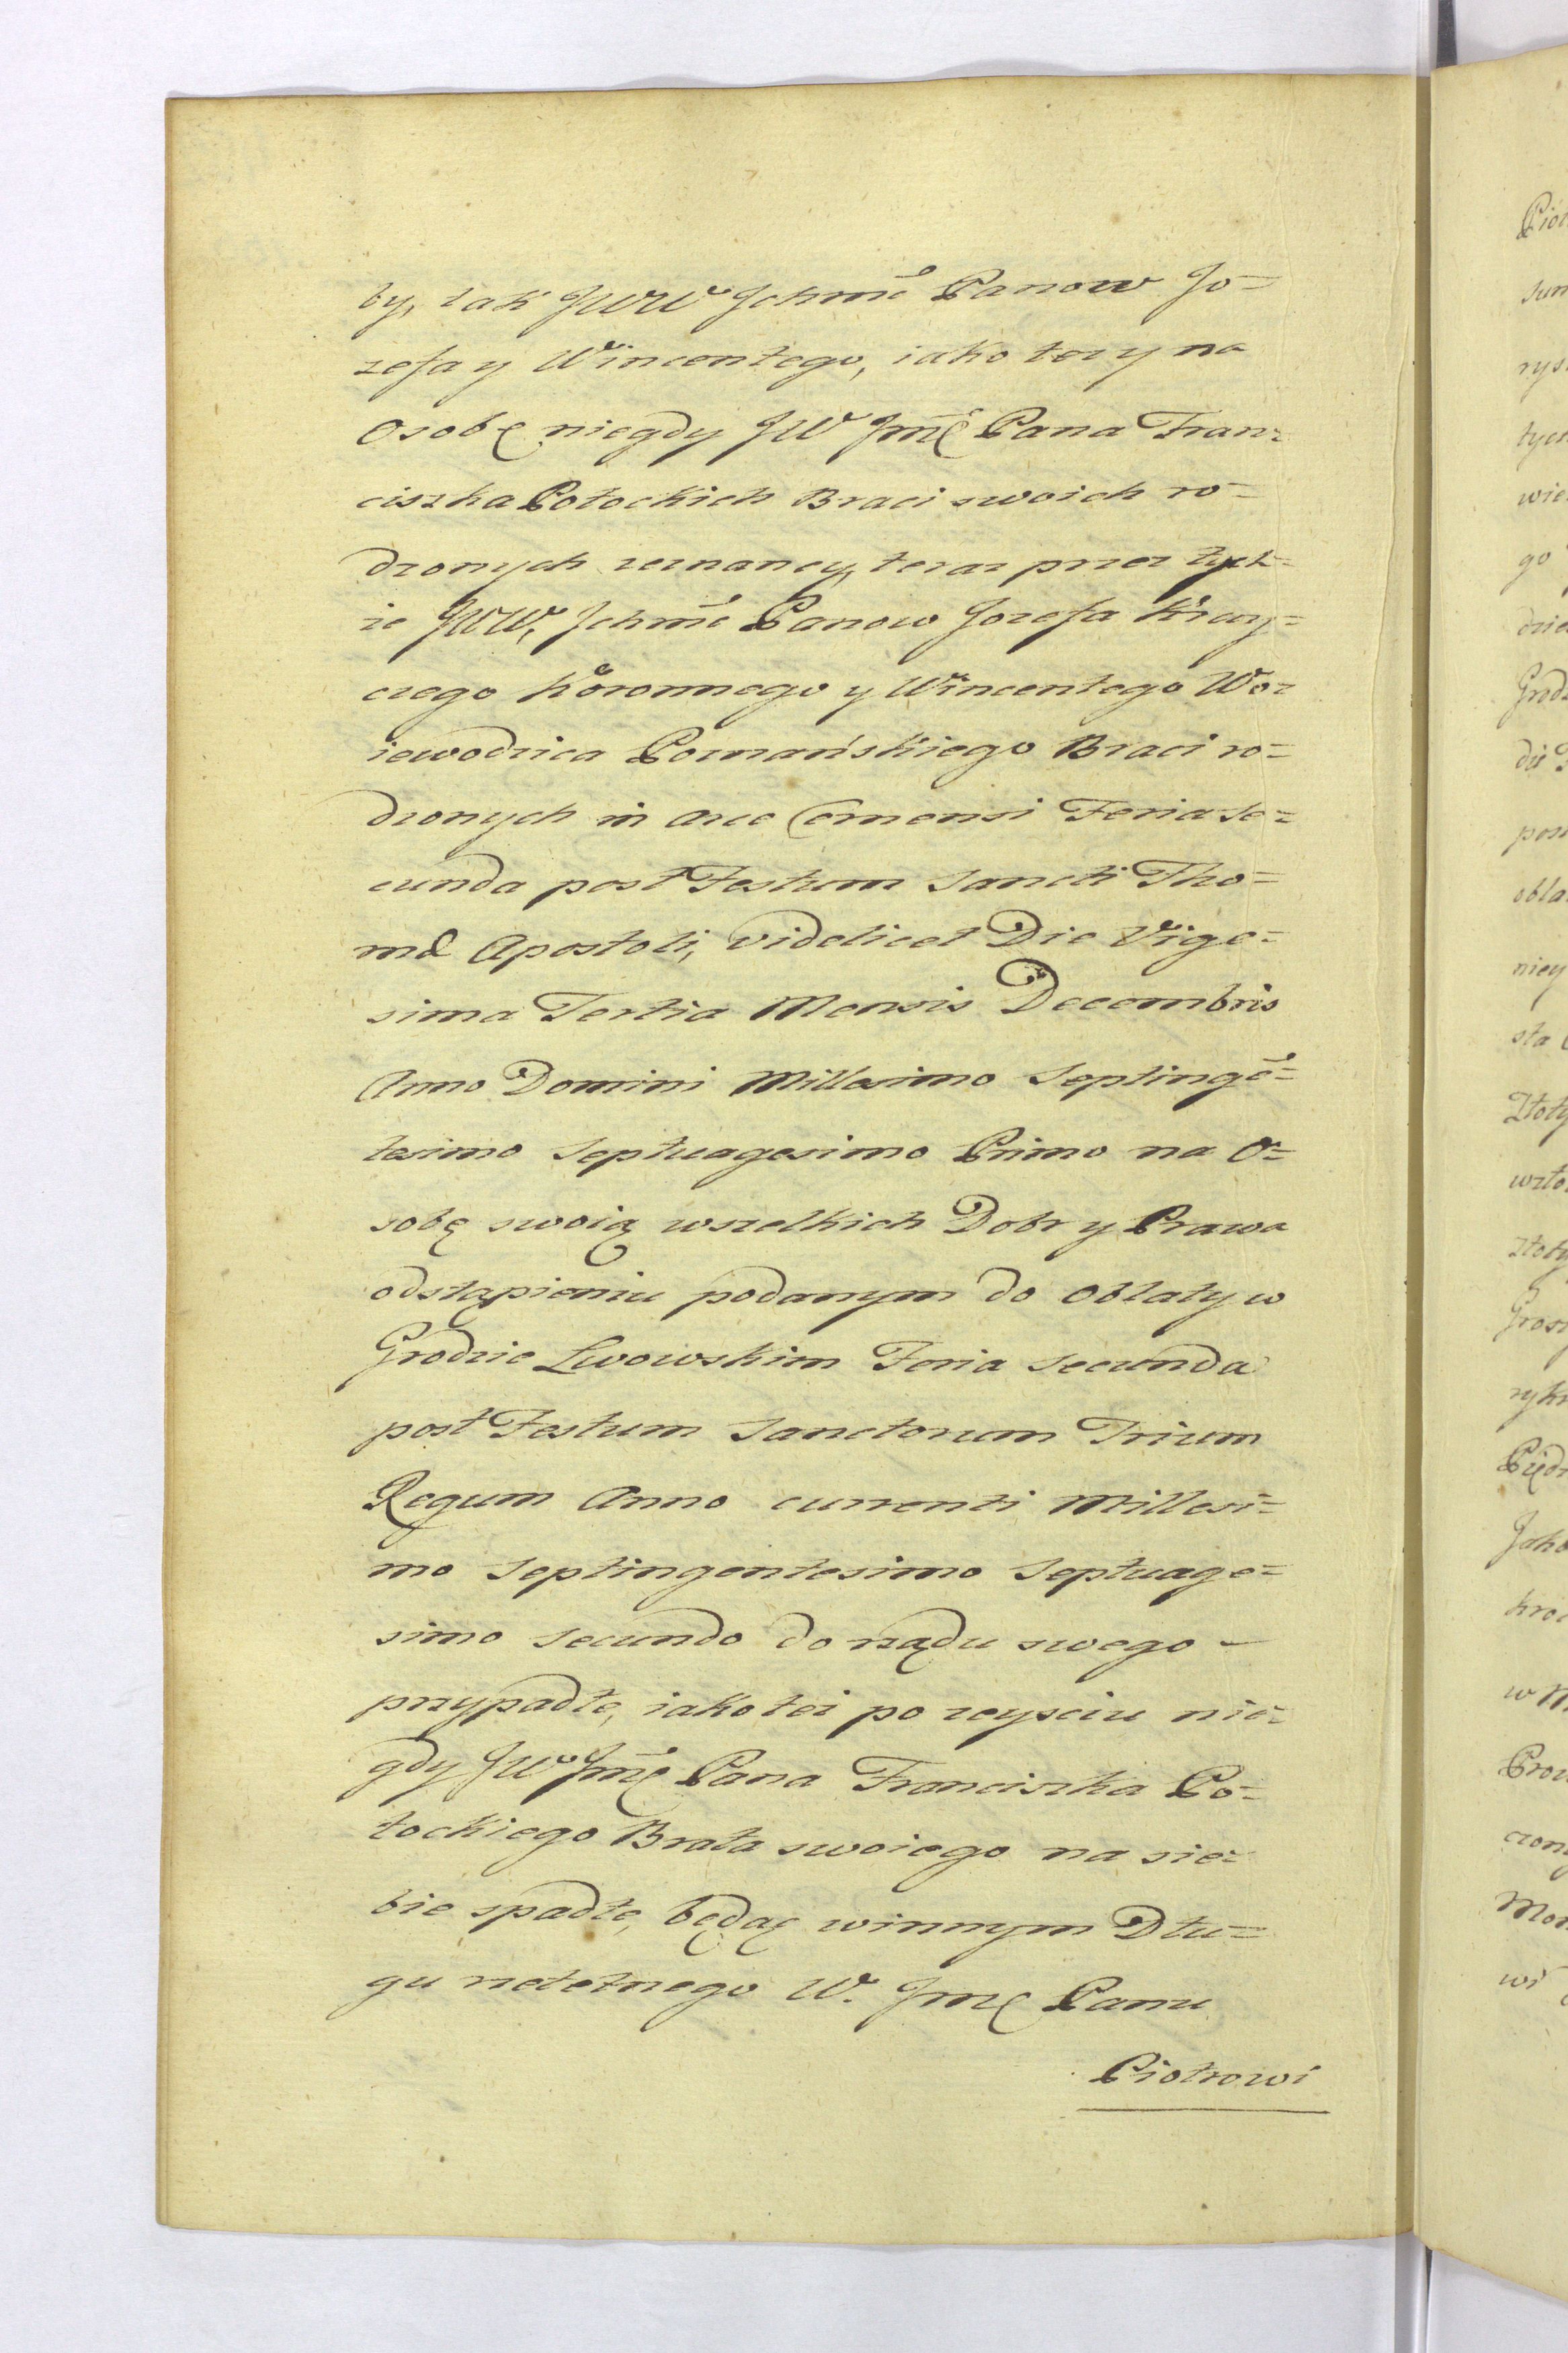 by, tak JWW Jchmć Panow Jo=
zefa y Wincentego, iako tez y na
Osobę niegdy JW Jmć Pana Fran=
ciszka Potockich Braci swoich ro=
dzonych zeznaney, teraz przez tych=
ze JWW, Jchmć Panow Jozefa Kray=
czego Koronnego y Wincentego Wo=
iewodzica Poznańskiego Braci ro=
dzonych in Arce Cemensi Feria Se=
cunda post Festum Sancti Tho=
mæ Apostoli, videlicet Die Vige=
sima Tertia Mensis Decembris
Anno Domini Millesimo Septingē=
tesimo Septuagesimo Primo na O=
sobę swoię wszelkich Dobr y Prawa
odstąpieniu podanym do Oblaty w
Grodzie Lwowskim Feria Secunda
post Festum Sanctorum Trium
Regum Anno currenti Millesi=
mo Septingentesimo Septuage=
simo Secundo do rządu swego –
przypadłe, iako tez po zeyściu nie=
gdy JW Jmć Pana Franciszka Po=
tockiego Brata swoiego na sie=
bie spadłe, będąc winnym Dłu=
gu rzetelnego W. Jmć Panu
Piotrowi